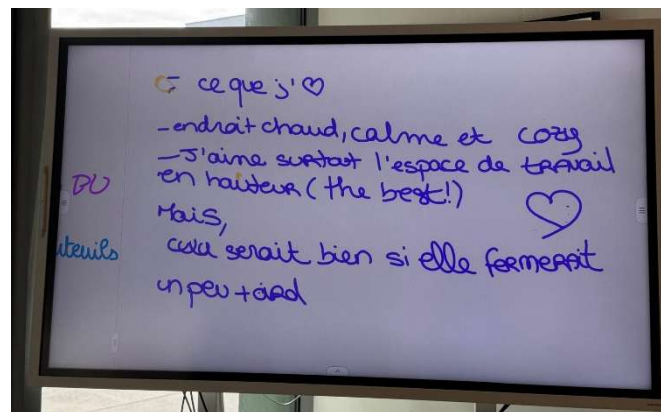 ce que j'♡
-endroit chaud, calme et cozy
-J'aime surtout l'espace de travail
en hauteur (the best!)
BU
Mais,
uteuils
cela serait bien si elle fermerait
un peu + tard